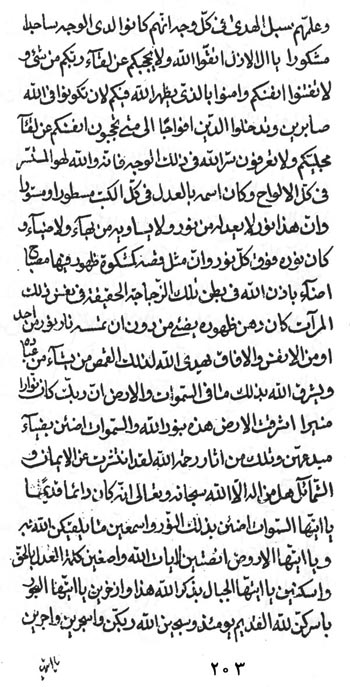 وعلمهم سبل الهدى فى كل وجه انهم كانوا لدى الوجه ساجدا
مشكورا يا ال الازل اتقوا الله ولا يحجبكم عن لقآء ربكم من شئ و
لا تفتنوا انفسكم وامنوا بالذى يظهر الله منكم لان تكونوا فى الله
صابرين ويدخلوا الدين افواجا الى متى تحجبون انفسكم عن لقآء
مجليكم ولا تعرفون سر الله فى ذلك الوجه فانه والله لهو المستسر
فى كل الالواح وكان اسمه بالعدل فى كل الكتب مسطورا ومستورا
وان هذا نور لا يعدله من نور ولا يساويه من بهآء ولا ضيآء و
كان نوره فوق كل نور وان مثل قمصه كمشكوة ظهور فيها مصباح
اضآء باذن الله فى بطن تلك الزجاجة الحقيقة فى نفس ذلك
المرآت كان دهن ظهوره يضئ من دون ان تمسسه نار نور من احد
او من الانفس والافاق يهدى الله لذلك القمص من يشآء من عباده
ويشرق الله بذلك ما فى السموات والارض ان ربك كان نوارا
منيرا اشرقت الارض هذه بنور الله والسموات اضئن بضيآء
مبدعهن وتلك من آثار رحمة الله لقد انتشرت عن الايمان و
الشمآئل هل من اله الا الله سبحانه وتعالى انه كان دآئما قديما
يا ايتها السموات اضئن بذلك النور واسمعن ما يلقيكن الله به
ويا ايتها الارض انصتين لايات الله واصغين كلمة العدل بالحق
واسكنين يا ايتها الجبال بذكر الله هذا وازخرين يا ايتها البحور
باسركن لله القديم يومئذ وسبحين الله ربكن واسجرين واجرين
يا ايتها
٢٠٣